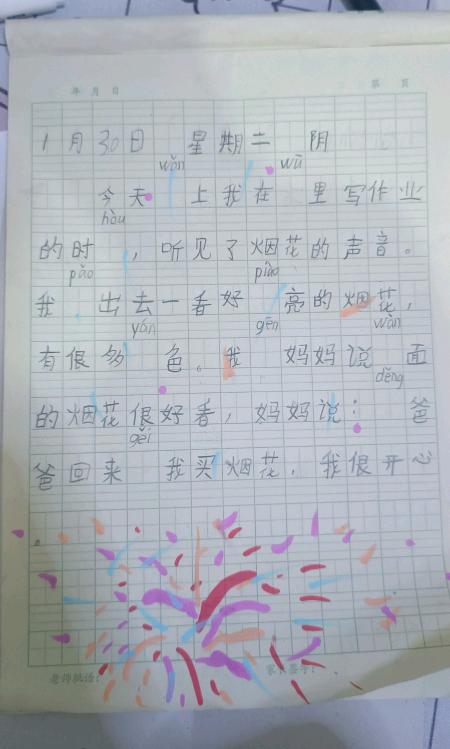 年 月 日 第 页
1月30日 星期二 阴
wǎn wū
今天 上我在 里写作业
hòu
的时 ，听见了烟花的声音。
pǎo piào
我 出去一看好 亮的烟花，
yán gēn wàn
有很多 色。我 妈妈说 面
děng
的烟花很好看，妈妈说： 爸
gěi
爸回来 我买烟花，我很开心
。
老师批语： 家长签字：